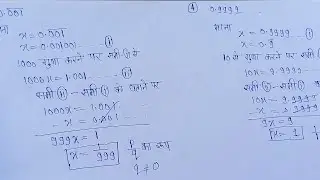 0.001
x = 0.001
x = 0.001001 ...... (i)
1000 गुणा करने पर समी० (i) से
1000x = 1.001 ..... (ii)
समी (ii) - समी (i) को घटाने पर
1000x = 1.001
x = 0.001
999x = 1
x = 1/999
p/q का रूप
q ≠ 0
0.9999
माना
x = 0.9999 .... (i)
x = 0.9
10 से गुणा करने पर
10x = 9.9999
समी (ii) - समी (i)
10x = 9.9999
x = 0.9999
9x = 9
x = 1